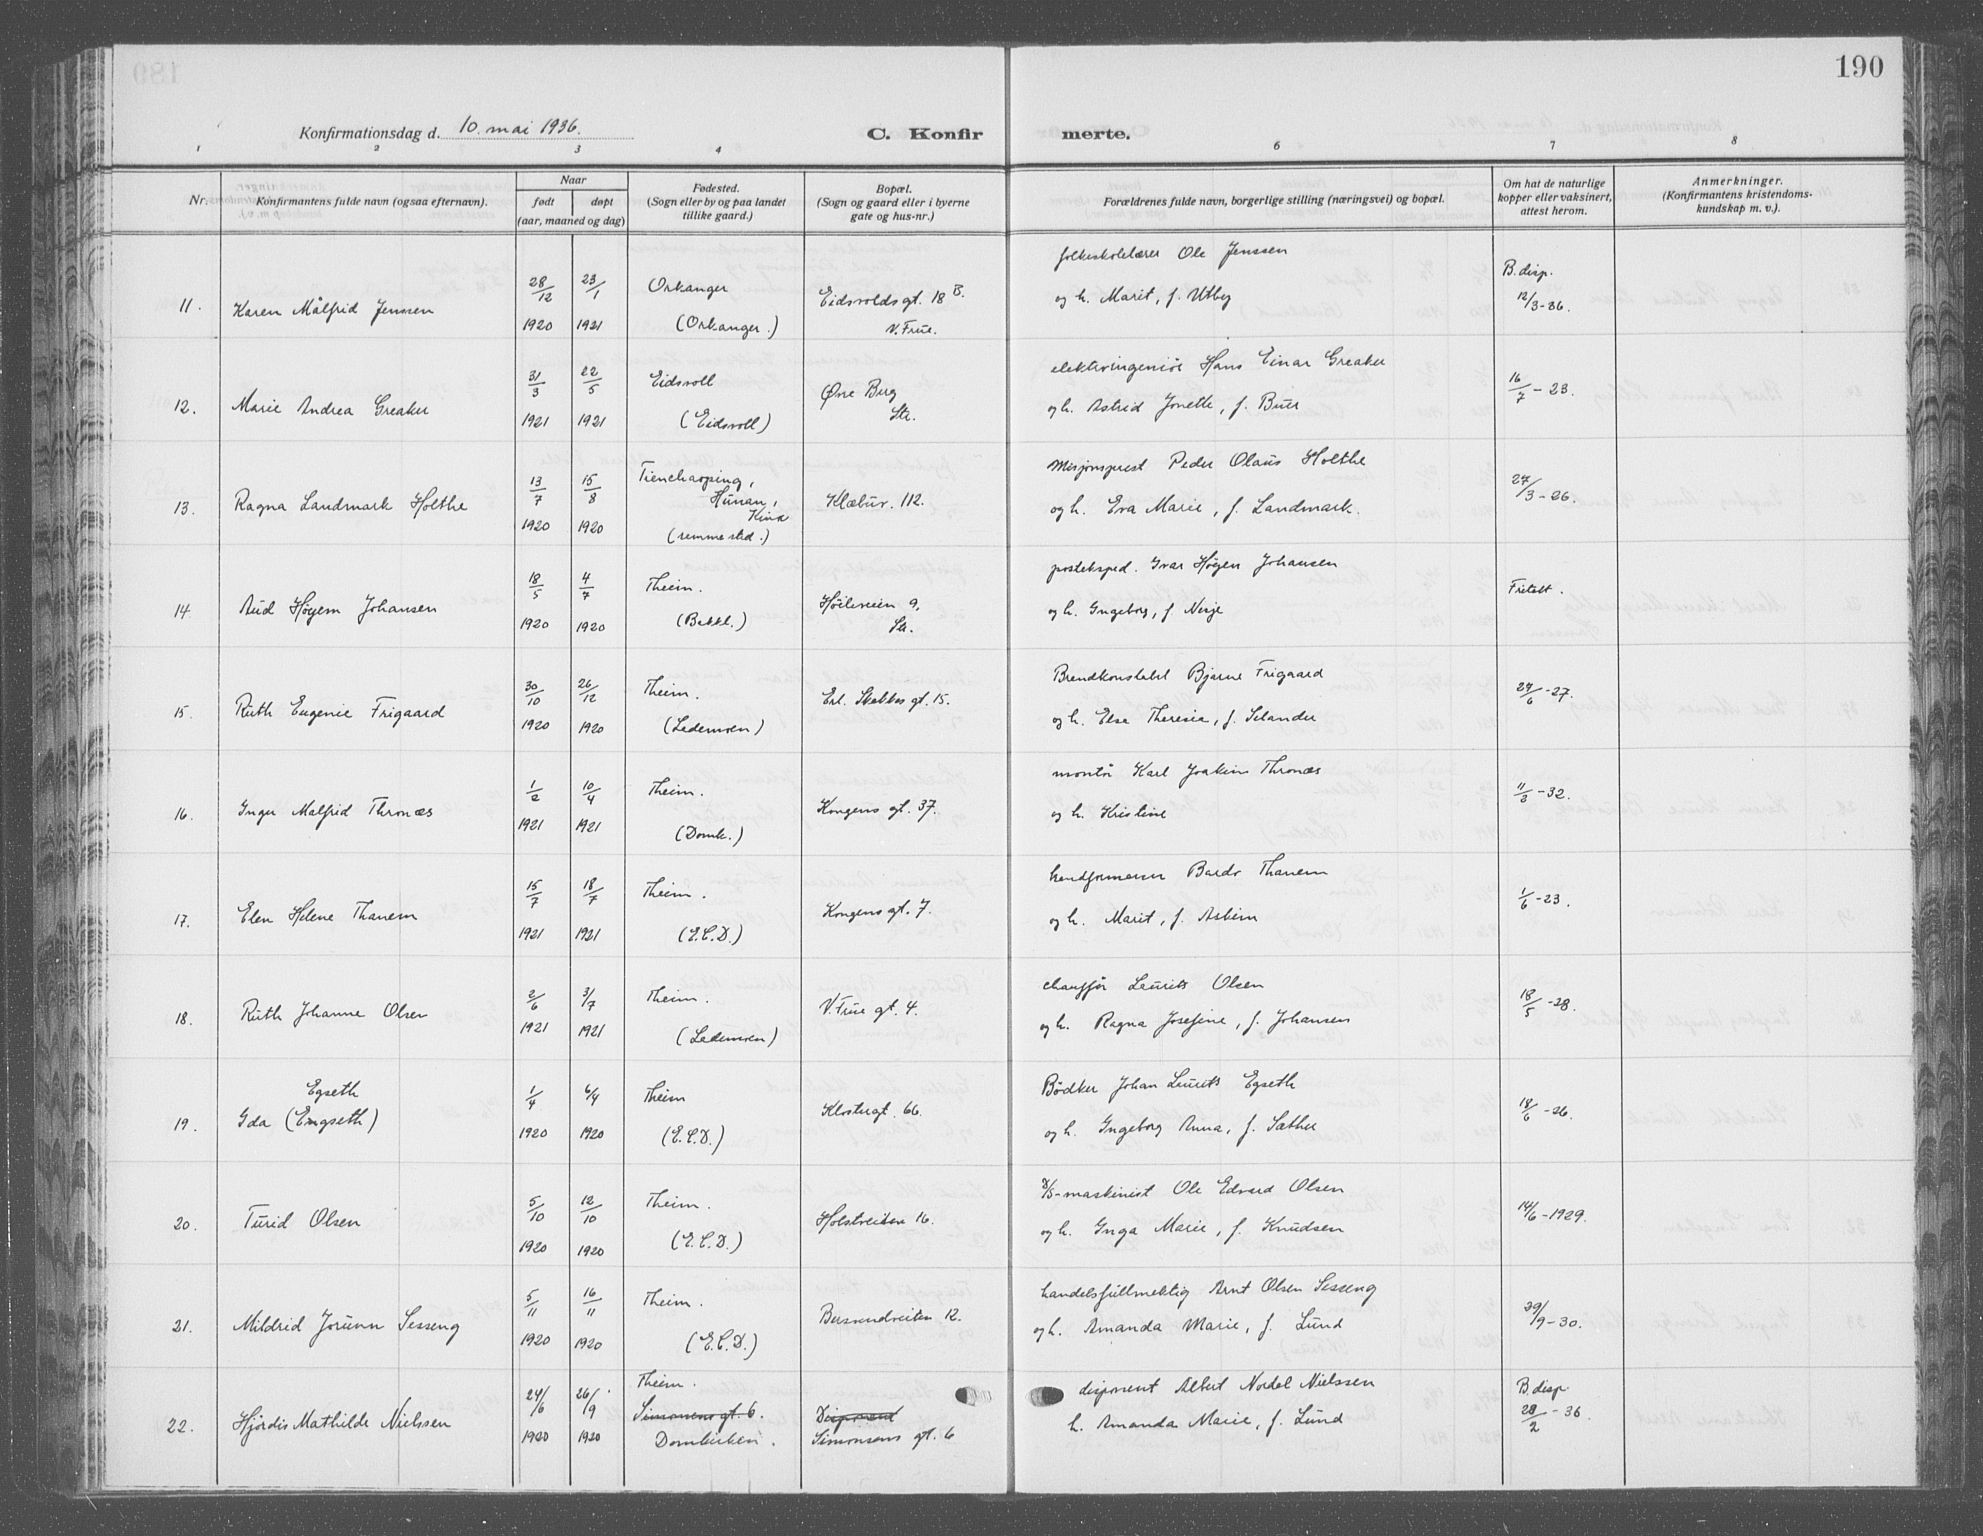 190
Konfirmationsdag d. 10. mai 1936.
C. Konfir
merte.
1 2 3 4 6 7 8
Nr. Konfirmantens fulde navn (ogsaa efternavn). Naar født døpt (aar, maaned og dag)
Fødested. (Sogn eller by og paa landet tillike gaard.)
Bopæl. (Sogn og gaard eller i byerne gate og hus-nr.)
Forældrenes fulde navn, borgerlige stilling (næringsvei) og bopæl.
Om hat de naturlige kopper eller vaksinert, attest herom.
Anmerkninger. (Konfirmantens kristendoms-kundskap m. v.).
11. Karen Målfrid Jenssen 28/12 1920 23/1 1921 Orkanger (Orkanger.) Eidsvolds gt. 18 B. V. Frue.
folkeskolelærer Ole Jenssen
og h. Marit, f. Utby
B. disp. 12/3-36.
12. Marie Andrea Greaker 31/3 1921 22/5 1921 Eidsvoll (Eidsvoll) Øvre Berg Str.
elektroingeniør Hans Einar Greaker
og h. Astrid Jonette, f. Buer
16/7-23.
13. Ragna Landmark Holthe 13/7 1920 15/8 1920 Hunan, Kina (samme sted.) Klæbuv. 112.
Misjonsprest Peder Olaus Holthe
og h. Eva Marie, f. Landmark.
27/3-26.
14. Aud Høyem Johansen 18/5 1920 4/7 1920 Theim. (Bakkl.) Høiliveien 9, Str.
posteksped. Ivar Høyem Johansen
og h. Ingeborg, f. Nesje
Fritatt.
15. Ruth Eugenie Frigaard 30/10 1920 26/12 1920 Theim. (Lademoen) Erl. Skakkes gt. 15.
Brandkonstabel Bjarne Frigaard
og h. Elsa Theresia, f. Selander
24/6-27.
16. Inger Malfrid Thronæs 1/2 1921 10/4 1921 Theim. (Domk.) Kongens gt. 37.
montør Karl Joakim Thronæs
og h. Kristine
11/3-32.
17. Elen Helene Thanem 15/7 1921 18/7 1921 Theim. (E.C.D.) Kongens gt. 7.
Bardo Thanem
og h. Marit, f. Asheim
1/6-23.
18. Ruth Johanne Olsen 2/6 1921 3/7 1921 Theim. (Lademoen) V. Frue gt. 4.
chauffør Laurits Olsen
og h. Ragna Josefine, f. Johansen
18/5-28.
19. Egseth
Ida (Engseth) 1/4 1920 6/4 1920 Theim (E.C.D.) Klostergt. 66.
Bødker Johan Laurits Egseth
og h. Ingeborg Anna, f. Sæther
18/6-26.
20. Turid Olsen 5/10 1920 12/10 1920 Theim. (E.C.D.) Holstveiten 16.
D/S-maskinist Ole Edvard Olsen
og h. Inga Marie, f. Knudsen
14/6-1929.
21. Mildrid Jorunn Sesseng 5/11 1920 16/11 1920 Theim. (E.C.D.) Bersvendveiten 12.
handelsfullmektig Arnt Olsen Sesseng
og h. Amanda Marie, f. Lund
29/9-30.
22. Hjørdis Mathilde Nielssen 24/6 1920 26/9 1920 Theim. Simonsens gt. 6. Domkirken. Disponent Simonsens gt. 6
disponent Albert Nordal Nielssen
h. Amanda Marie, f. Lund
B. disp. 28/2-36.